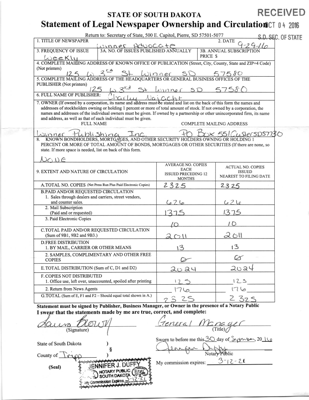 STATE OF SOUTH DAKOTA
RECEIVED
Statement of Legal Newspaper Ownership and Circulation
OCT 04 2016
Return to: Secretary of State, 500 E. Capitol, Pierre, SD 57501-5077
S.D. SEC. OF STATE
1. TITLE OF NEWSPAPER
Winner Advocate
2. DATE
9-29-16
3. FREQUENCY OF ISSUE
Weekly
3A. NO. OF ISSUES PUBLISHED ANNUALLY
3B. ANNUAL SUBSCRIPTION PRICE $
4. COMPLETE MAILING ADDRESS OF KNOWN OFFICE OF PUBLICATION (Street, City, County, State and ZIP+4 Code) (Not printers)
125 W 3rd St Winner SD 57580
5. COMPLETE MAILING ADDRESS OF THE HEADQUARTERS OR GENERAL BUSINESS OFFICES OF THE PUBLISHER (Not printer)
125 W 3rd St Winner SD 57580
6. FULL NAME OF PUBLISHER:
7. OWNER (If owned by a corporation, its name and address must be stated and also immediately thereafter the names and
addresses of stockholders owning or holding 1 percent or more of total amount of stock. If not owned by a corporation, the
names and addresses of the individual owners must be given. If owned by a partnership or other unincorporated firm, its name
and address, as well as that of each individual must be given.
FULL NAME
COMPLETE MAILING ADDRESS
Winner Publishing Inc.
8. KNOWN BONDHOLDERS, MORTGAGEES, AND OTHER SECURITY HOLDERS OWNING OR HOLDING 1
PERCENT OR MORE OF TOTAL AMOUNT OF BONDS, MORTGAGES OR OTHER SECURITIES (If there are none, so
state. If more space is needed, list on back of this form.
None
9. EXTENT AND NATURE OF CIRCULATION
AVERAGE NO. COPIES EACH ISSUED PRECEDING 12 MONTHS
ACTUAL NO. COPIES ISSUED NEAREST TO FILING DATE
A. TOTAL NO. COPIES (Net Press Run Plus Paid Electronic Copies)
2325
2325
B. PAID AND/OR REQUESTED CIRCULATION
1. Sales through dealers and carriers, street vendors, and counter sales
626
626
2. Mail Subscription (Paid and or requested)
1375
1375
3. Paid Electronic Copies
10
10
C. TOTAL PAID AND/OR REQUESTED CIRCULATION (Sum of 9B1, 9B2 and 9B3.)
2011
2011
D. FREE DISTRIBUTION
1. BY MAIL, CARRIER OR OTHER MEANS
13
13
2. SAMPLES, COMPLIMENTARY AND OTHER FREE COPIES
E. TOTAL DISTRIBUTION (Sum of C, D1 and D2)
2024
2024
F. COPIES NOT DISTRIBUTED
1. Office use, left over, unaccounted, spoiled after printing
125
125
2. Return from News Agents
176
176
G. TOTAL (Sum of E, F1 and F2 - Should equal total shown in A.)
2325
2325
Statement must be signed by Publisher, Business Manager, or Owner in the presence of a Notary Public
I swear that the statements made by me are true, correct, and complete:
General Manager
(Signature)
(Title)
State of South Dakota )
Sworn to before me this 30 day of
County of Tripp )
Notary Public
(Seal)
JENNIFER J. DUFFY
NOTARY PUBLIC
SOUTH DAKOTA
My commission expires: